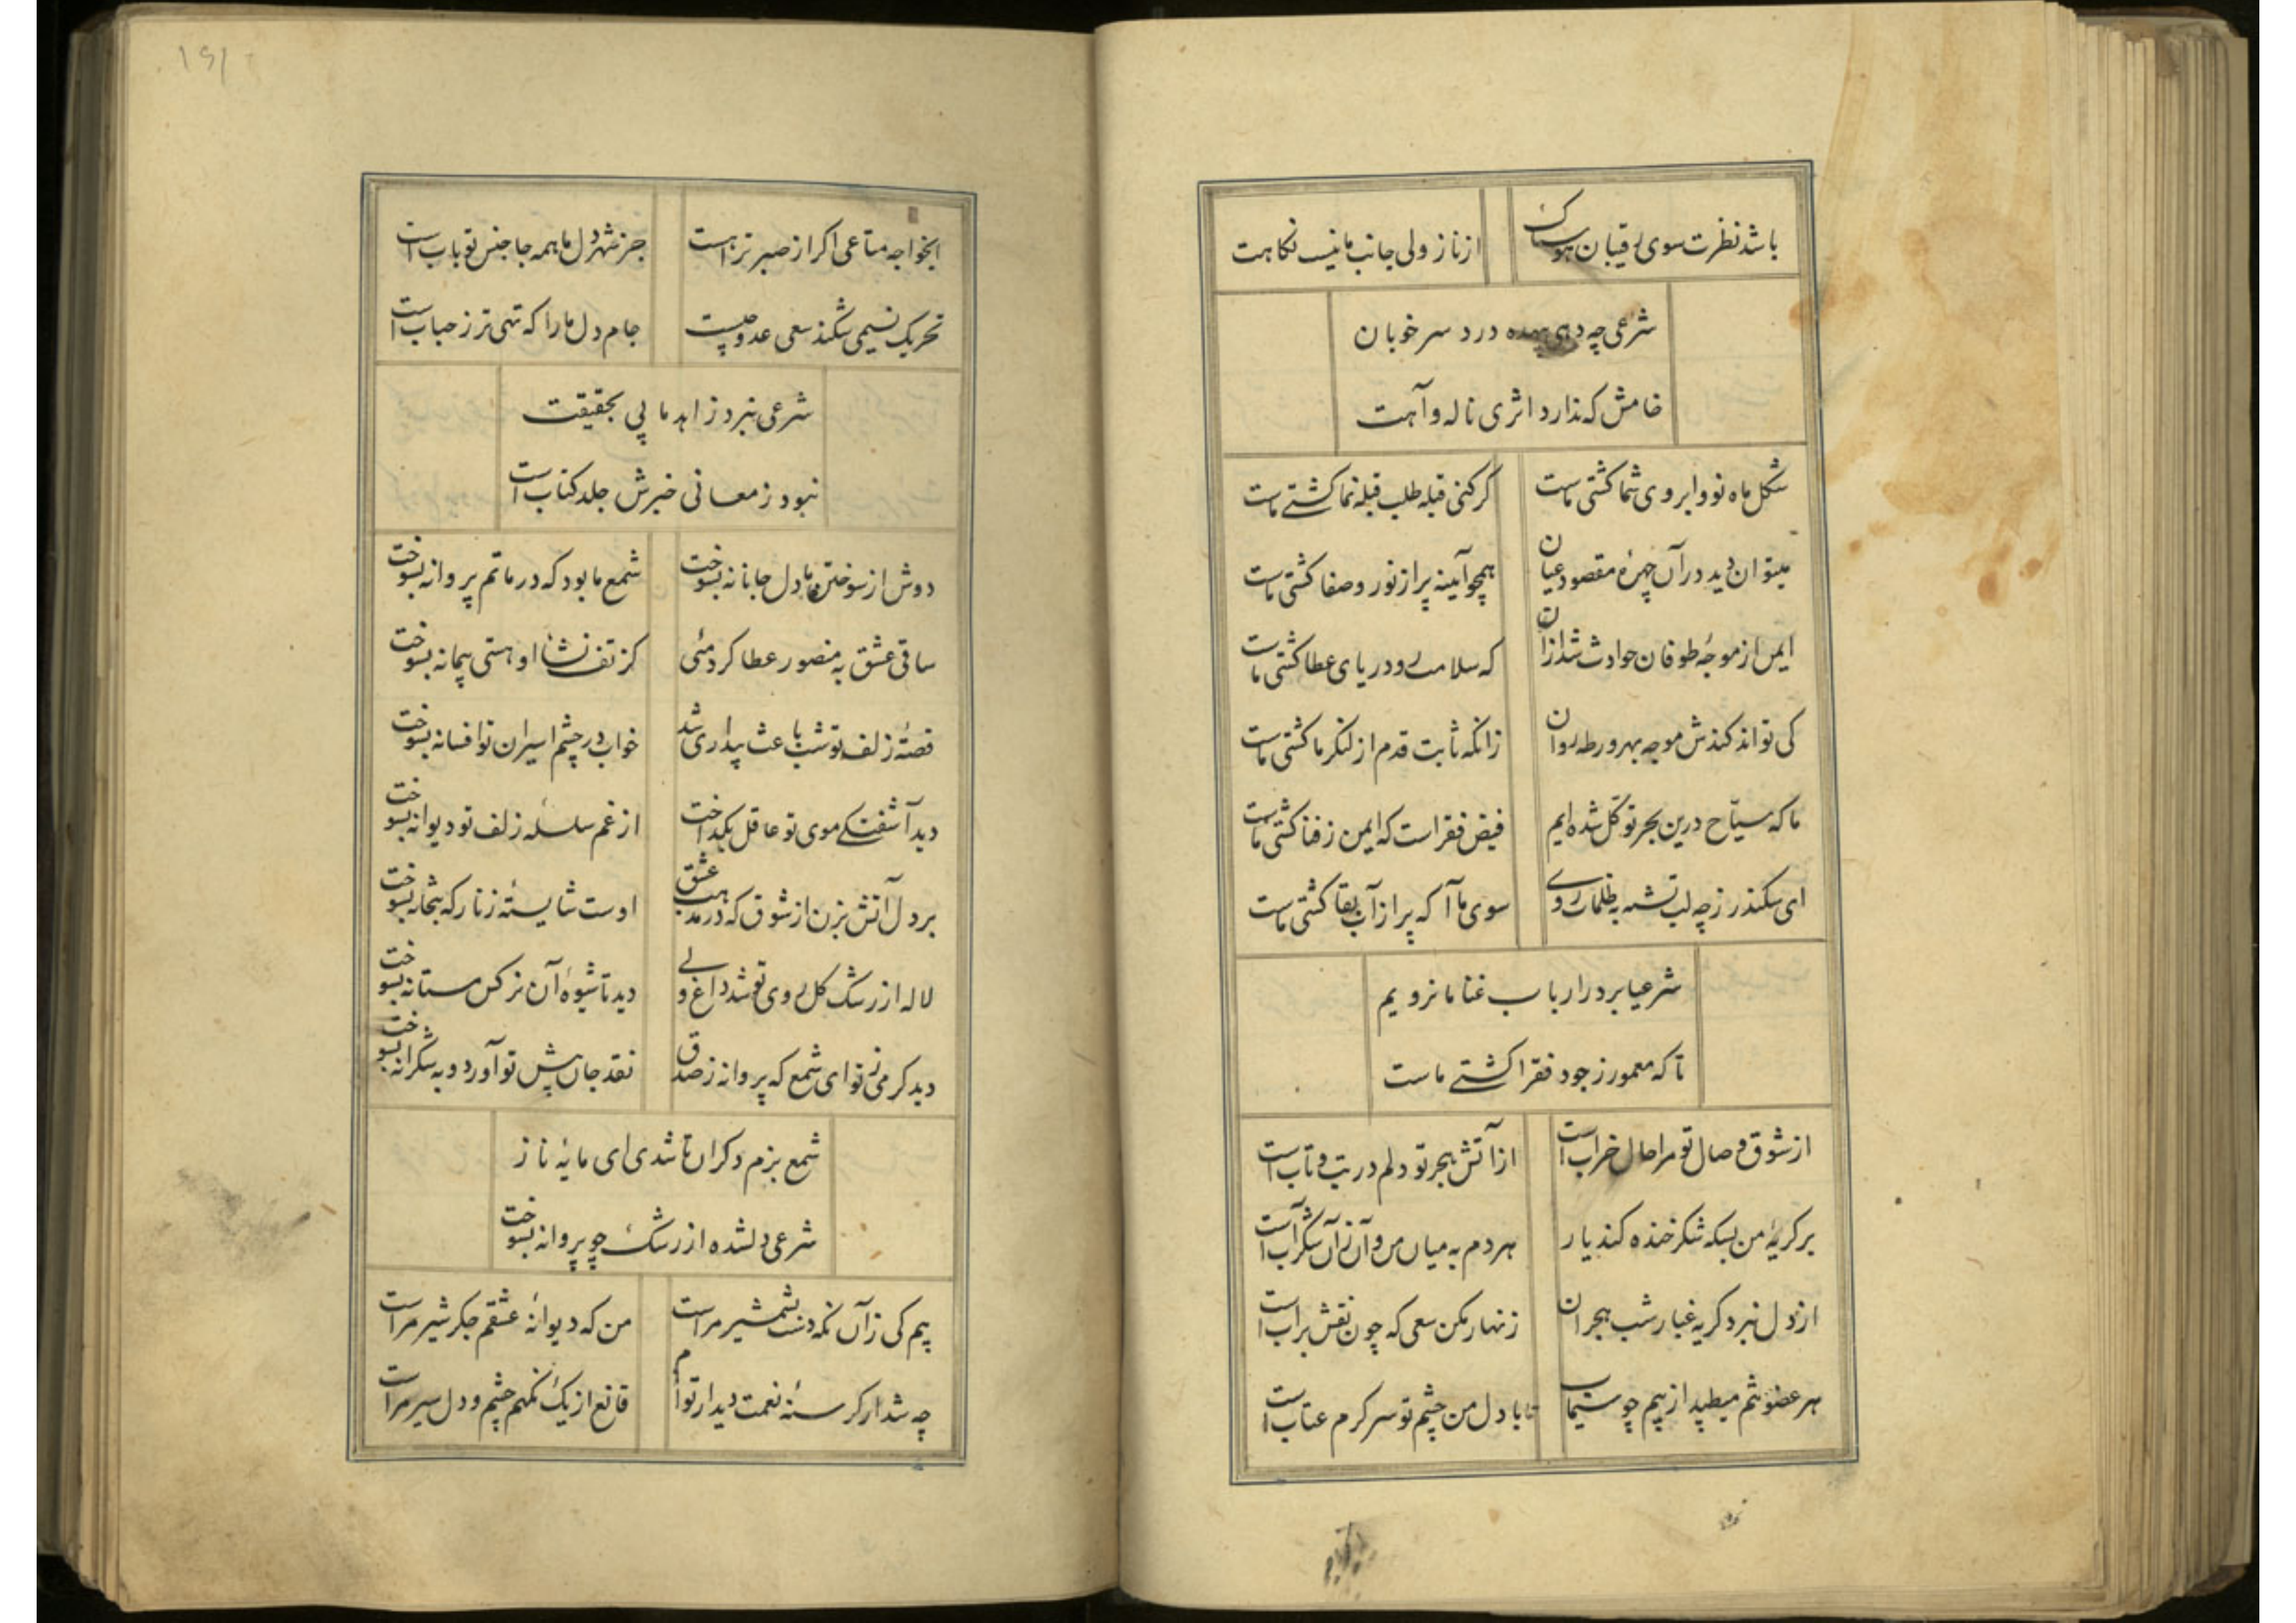 باشد نظرت سوی رقیبان هوسناک
از ناز ولی جانب ما نیست نکاهت
شرعی چه دهی بیهده درد سر خوبان
خامش که ندارد اثری ناله و آهت
شکل ماه نو و ابروی شما کشتی ماست
کر کنی قبله طلب قبله نما کشتی ماست
میتوان دید در آن چهرهٔ مقصود عیان
همچو آیینه پر از نور و صفا کشتی ماست
ایمن از موجهٔ طوفان حوادث شد از آن
که سلامت رو دریای عطا کشتی ماست
کی تواند کندش موجه بهر ورطه روان
زانکه ثابت قدم از لنکر ما کشتی ماست
ما که سیّاح درین بحر توکّل شده ایم
فیض فقر است که ایمن ز فنا کشتی ماست
ای سکندر ز چه لب تشنه به ظلمات روی
سوی ما آ که پر از آب بقا کشتی ماست
شرعیا بر در ارباب غنا ما نرویم
تا که معمور ز جود فقرا کشتی ماست
از شوق وصال تو مرا حال خراب است
از آتش هجر تو دلم در تب و تاب است
بر کریهٔ من بسکه شکر خنده کند یار
هر دم به میان من و آن زان شکرآب است
از دل نبرد کریه غبار شب هجران
زنهار مکن سعی که چون نقش بر آب است
هر عضو تنم میطپد از بیم چو سیماب
تا با دل من چشم تو سرکرم عتاب است
ایخواجه متاعی اکر از صبر تراهست
جز شهر دل ما همه جا جنس تو باب است
تحریک نسیمی شکند سعی عدو چیست
جام دل ما را که تهی تر ز حباب است
شرعی نبرد زاهد ما پی بحقیقت
نبود ز معانی خبرش جلد کتاب است
دوش از سوختن ما دل جانانه بسوخت
شمع ما بود که در ماتم پروانه بسوخت
ساقی عشق به منصور عطا کرد مئی
کز تف نشأ او هستی پیمانه بسوخت
قصّهٔ زلف تو شب باعث بیداری شد
خواب در چشم اسیران تو افسانه بسوخت
دید آشفتکی موی تو عاقل بکداخت
از غم سلسلهٔ زلف تو دیوانه بسوخت
بر دل آتش بزن از شوق که در مذهب عشق
اوست شایستهٔ زنار که بتخانه بسوخت
لاله از رشک کل روی تو شد داغ ولی
دید تا شیوهٔ آن نرکس مستانه بسوخت
دید کرمی ز تو ای شمع که پروانه ز صدق
نقد جان پیش تو آورد و به شکرانه بسوخت
شمع بزم دکران تا شدی ای مایهٔ ناز
شرعی دلشده از رشک چو پروانه بسوخت
بیم کی زآن نکه دست بشمشیر مراست
من که دیوانهٔ عشقم جکر شیر مراست
چه شد ار کرسنهٔ نعمت دیدار توام
قانع از یک نکهم چشم و دل سیر مراست